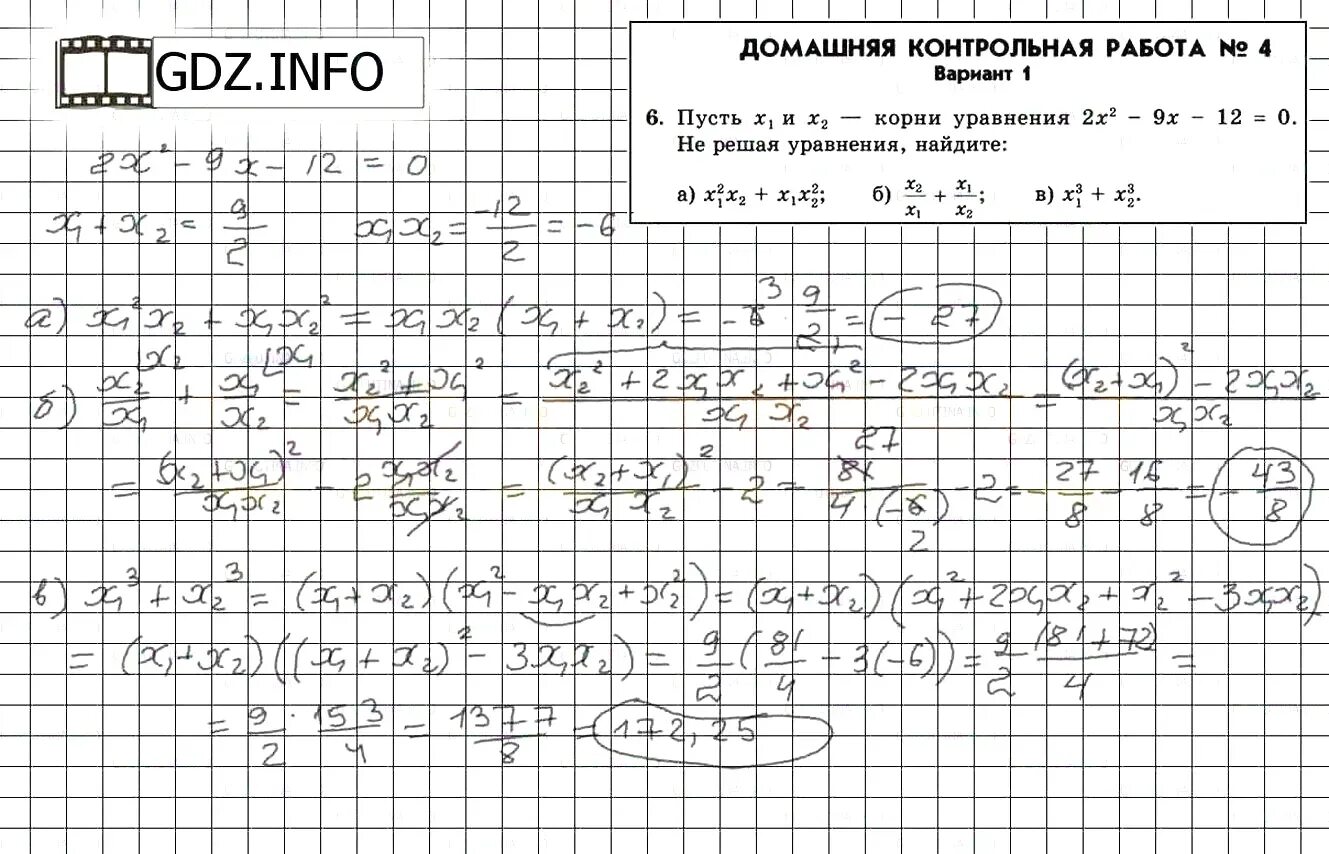 GDZ.INFO
ДОМАШНЯЯ КОНТРОЛЬНАЯ РАБОТА № 4
Вариант 1
6. Пусть x₁ и x₂ — корни уравнения 2x² − 9x − 12 = 0.
Не решая уравнения, найдите:
а) x₁²x₂ + x₁x₂²; б) x₂/x₁ + x₁/x₂; в) x₁³ + x₂³.
2x² − 9x − 12 = 0
x₁ + x₂ = 9/2 x₁x₂ = −12/2 = −6
а) x₁²x₂ + x₁x₂² = x₁x₂(x₁ + x₂) = −6 3 · 9/2 1 = −27
б) x₂/x₁ ⌊x₂ + x₁/x₂ ⌊x₁ = (x₂² + x₁²)/(x₁x₂) = (x₂² + 2x₁x₂ + x₁² − 2x₁x₂)/(x₁x₂) = ((x₂ + x₁)² − 2x₁x₂)/(x₁x₂)
= (x₂ + x₁)²/(x₁x₂) − 2 x₁x₂/(x₁x₂) = (x₂ + x₁)²/(x₁x₂) − 2 = 81 27/(4(−6) 2) − 2 = −27/8 − 16/8 = −43/8
в) x₁³ + x₂³ = (x₁ + x₂)(x₁² − x₁x₂ + x₂²) = (x₁ + x₂)(x₁² + 2x₁x₂ + x₂² − 3x₁x₂)
= (x₁ + x₂)((x₁ + x₂)² − 3x₁x₂) = 9/2 (81/4 − 3(−6)) = 9/2 (81 + 72)/4 =
= 9/2 · 153/4 = 1377/8 = 172,25